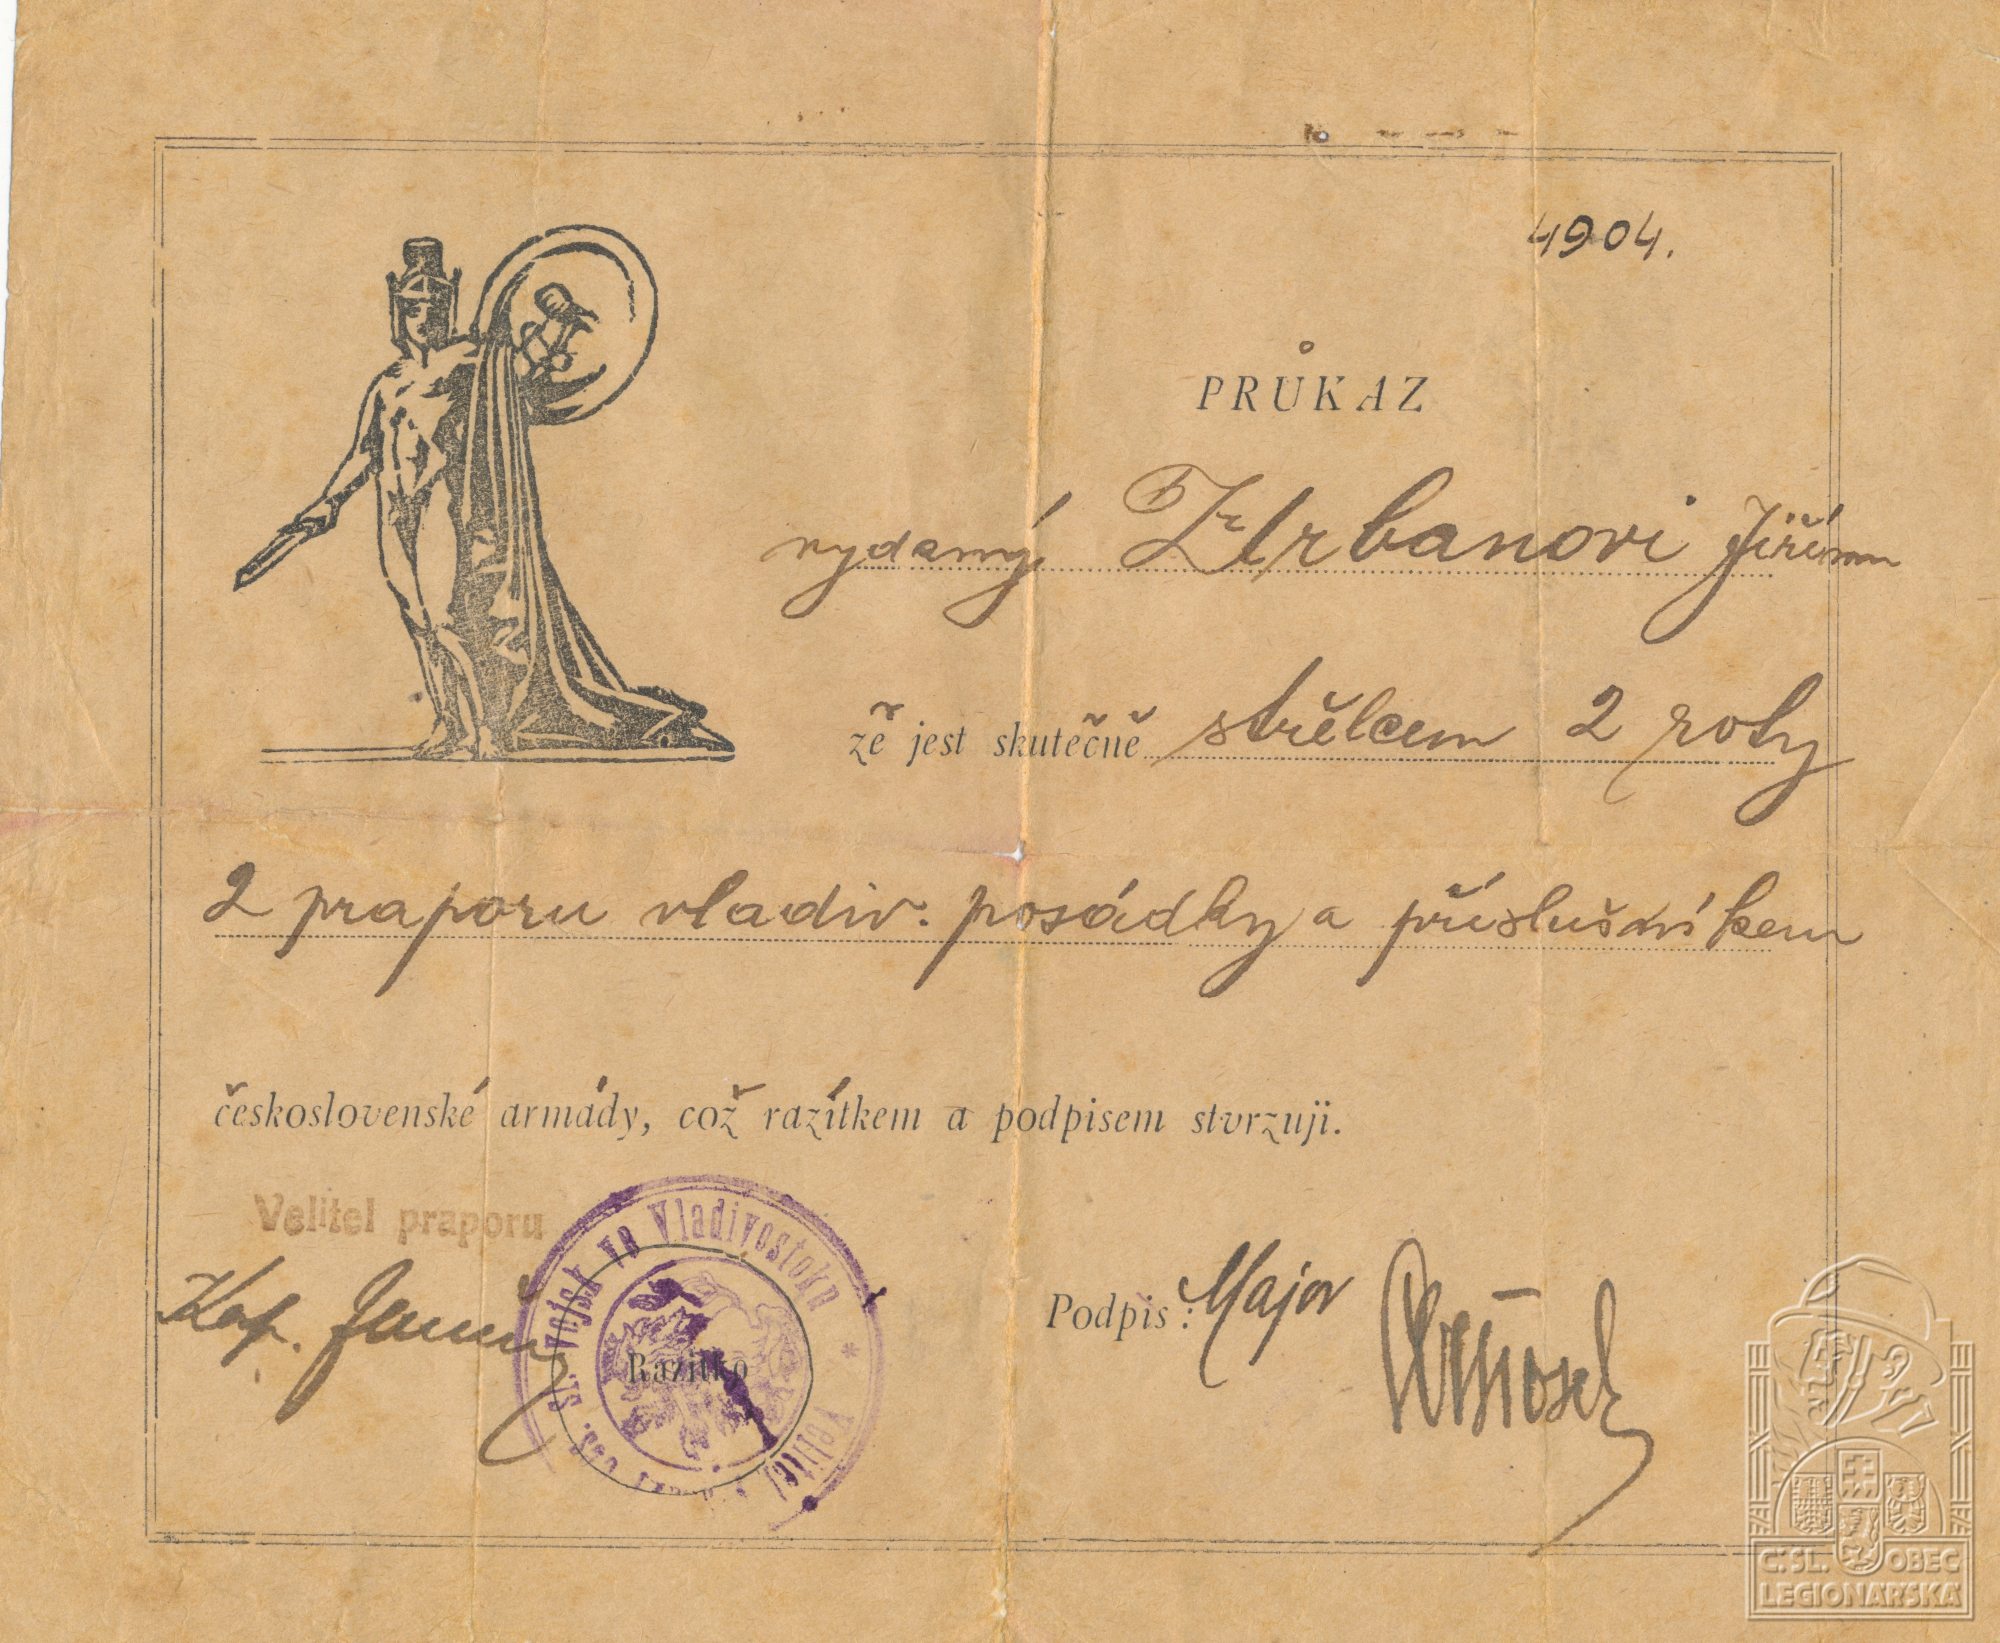 4904.
PRŮKAZ
vydaný Urbanovi Jiřímu
že jest skutečně střelcem 2 roty
2 praporu vladiv: posádky a příslušníkem
československé armády, což razítkem a podpisem stvrzuji.
Velitel praporu
Kap.
Razítko
st. vojsk ve Vladivostoku * Velitel
Podpis: Major
Č:SL. OBEC
LEGIONÁŘSKÁ